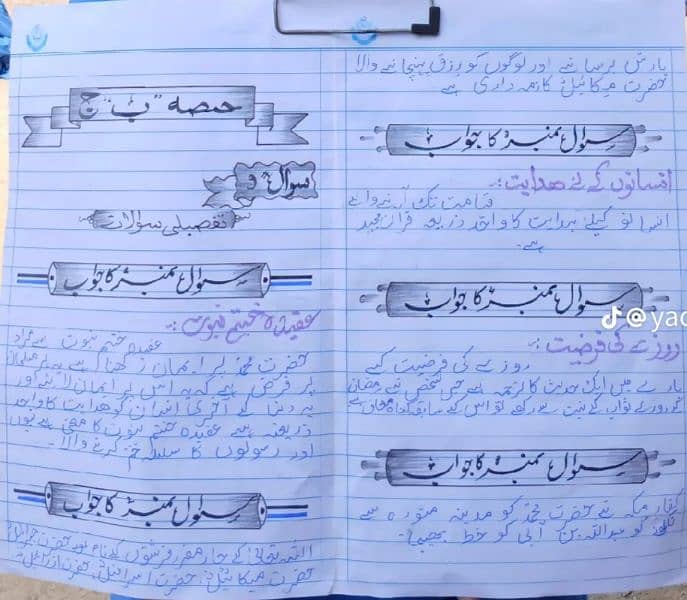 حصہ "ب" ج
سوال و
تفصیلی سوالات
سوال نمبر کا جواب
عقیدہ ختم نبوت :-
عقیدہ ختم نبوت سے مراد
حضرت محمدؐ پر ایمان رکھنا ہے یہ ہر مسلمان
پر فرض ہے کہ یہ اس پر ایمان لائے اور
یہ دین ہے آخری انسان کو ھدایت کا واحد
ذریعہ ہے عقیدہ ختم نبوت کا معنی ہے نبیوں
اور رسولوں کا سلسلہ ختم کرنے والا۔
سوال نمبر کا جواب
اللہ تعالیٰ کے چار مقرر فرشتوں کے نام ہے حضرت جبرائیلؑ
حضرت میکائیلؑ، حضرت اسرافیلؑ، حضرت
بارش برسانے اور لوگوں کو رزق پہنچانے والا
حضرت میکائیلؑ کا ذمہ داری ہے
سوال نمبر کا جواب
انسانوں کے لئے ھدایت :-
قیامت تک آنے والے
انسانو کیلئے ہدایت کا واحد ذریعہ قرآن مجید
ہے۔
سوال نمبر کا جواب
@yac
روزے کی فرضیت :-
روزے کی فرضیت کے
بارے میں ایک حدیث کا ترجمہ ہے جس شخص نے رمضان
کے روزے ثواب کے نیت سے رکھے تو اس کے سابقہ گناہ معاف ہے
سوال نمبر کا جواب
کفار مکہ نے حضرت محمدؐ کو مدینہ منورہ سے
کو عبداللہ بن ابی کو خط بھیجا۔